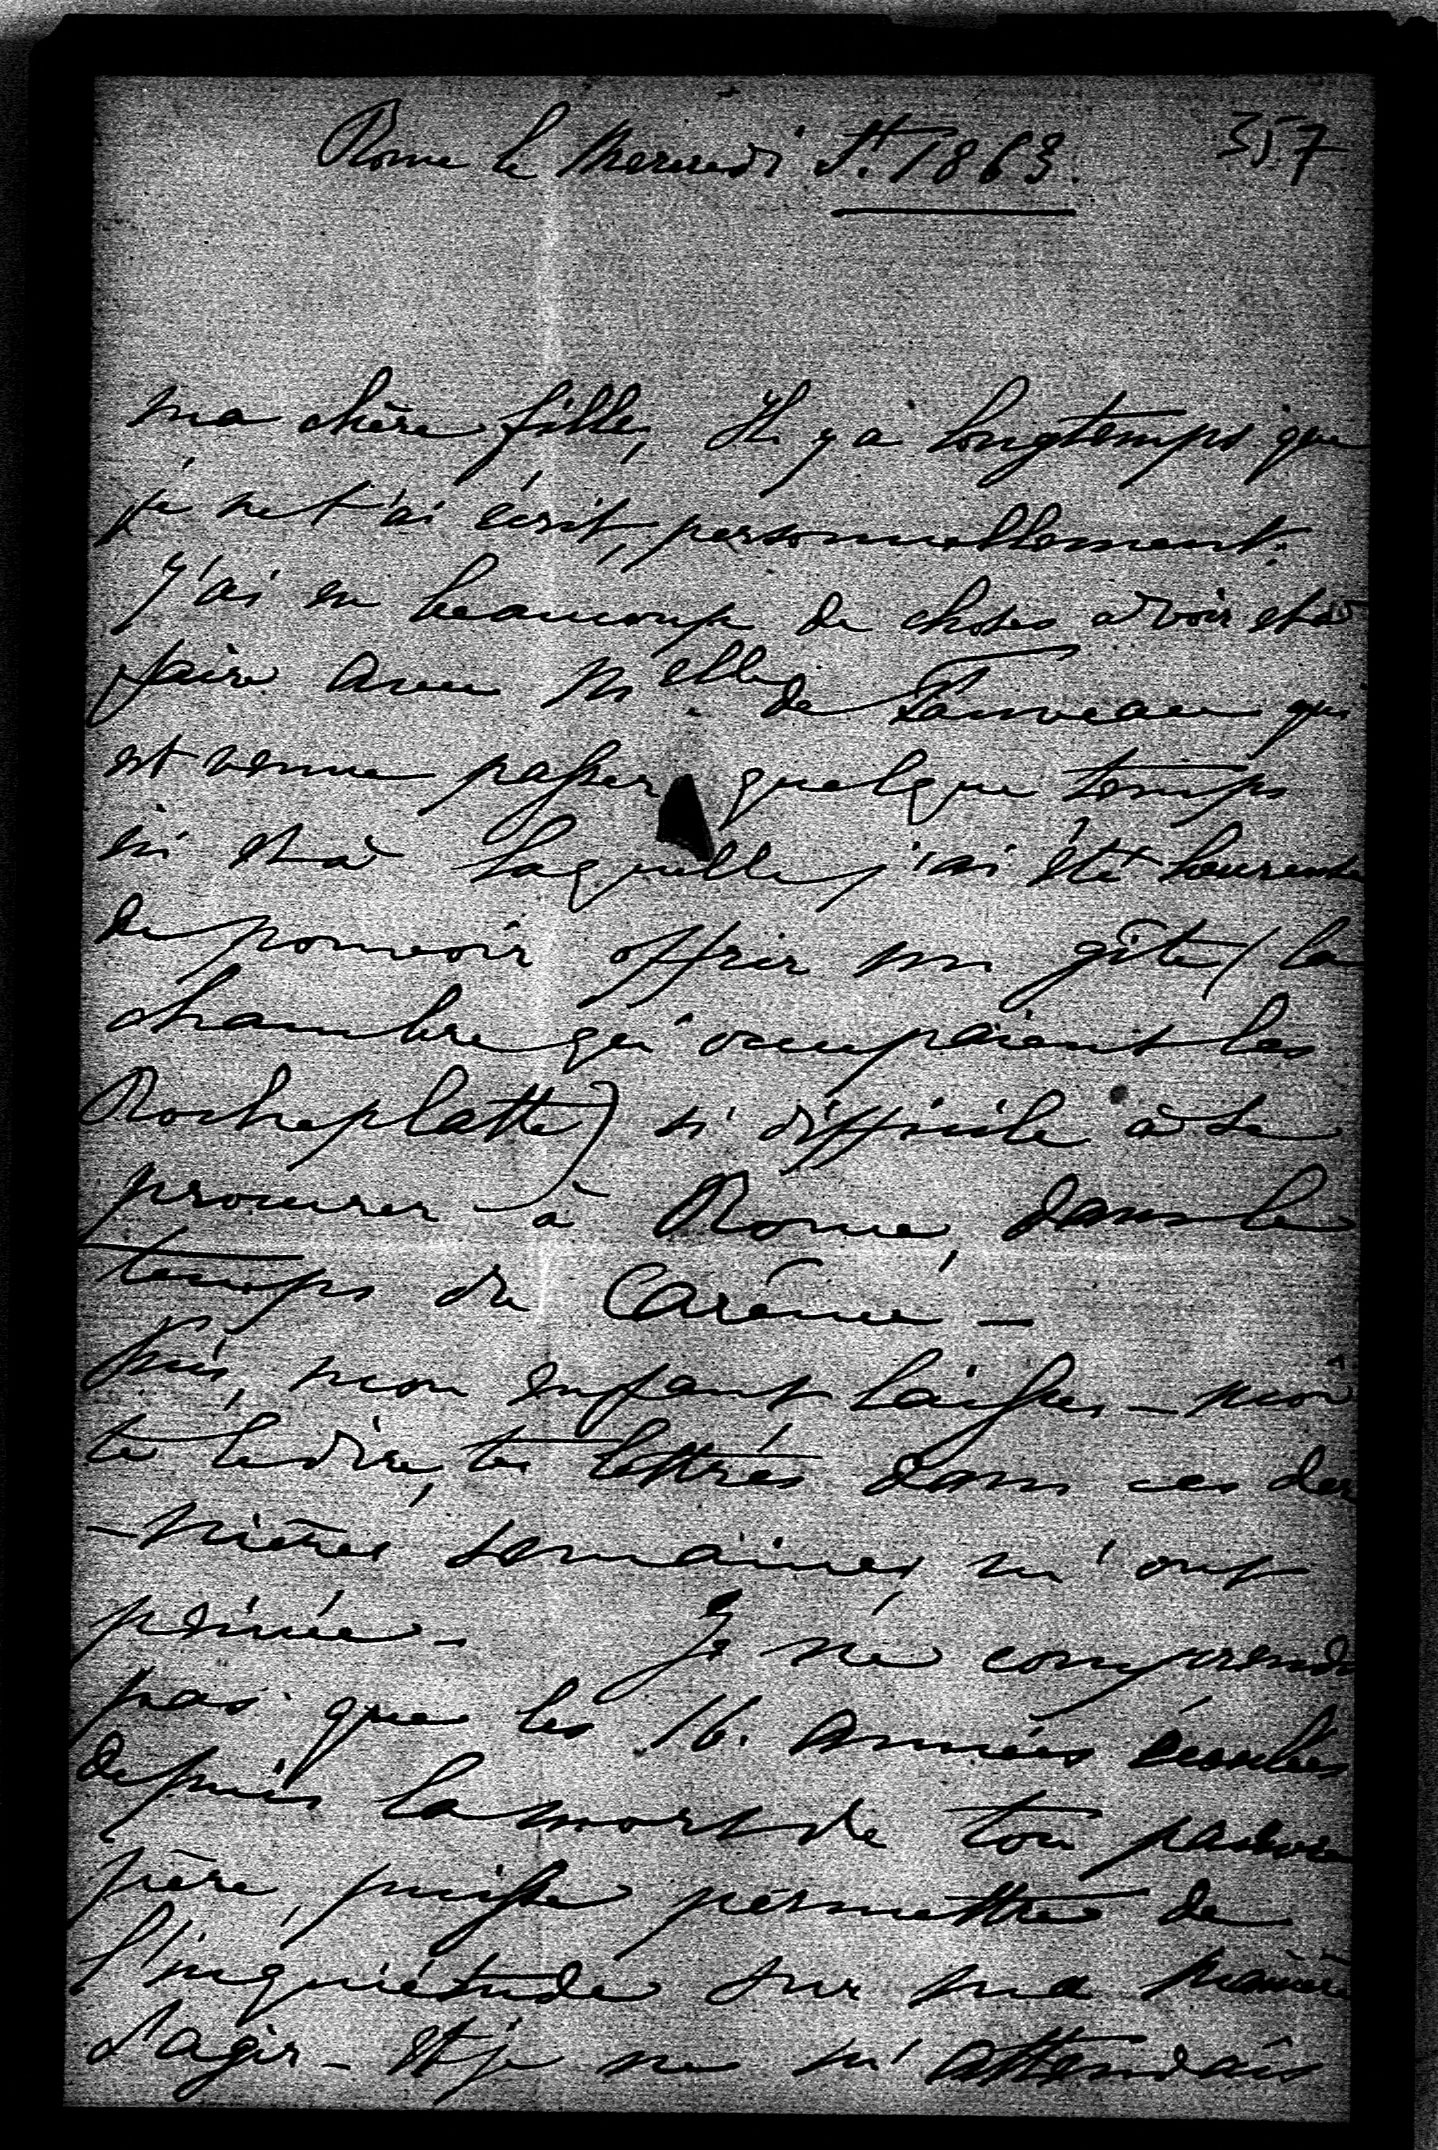 Rome le Mercredi St. 1863. 357
ma chère fille, Il y a longtemps que
je ne t'ai écrit, personnellement.
J'ai eu beaucoup de choses à voir et à
faire avec Melle. de Fauveau qui
est venue passer quelque temps
ici et à laquelle j'ai été heureuse
de pouvoir offrir un gîte (la
chambre qu'occupaient les
Rocheplatte) si difficile à se
procurer à Rome, dans le
temps du Carême _
Puis, mon enfant laisses-moi
te le dire, tes lettres dans ces der
-nières semaines, m'ont
peinée - Je ne comprends
pas que les 16. années écoulées
depuis la mort de ton pauvre
père, puisse permettre de
l'inquiétude sur ma manière
d'agir - Et je ne m'attendais